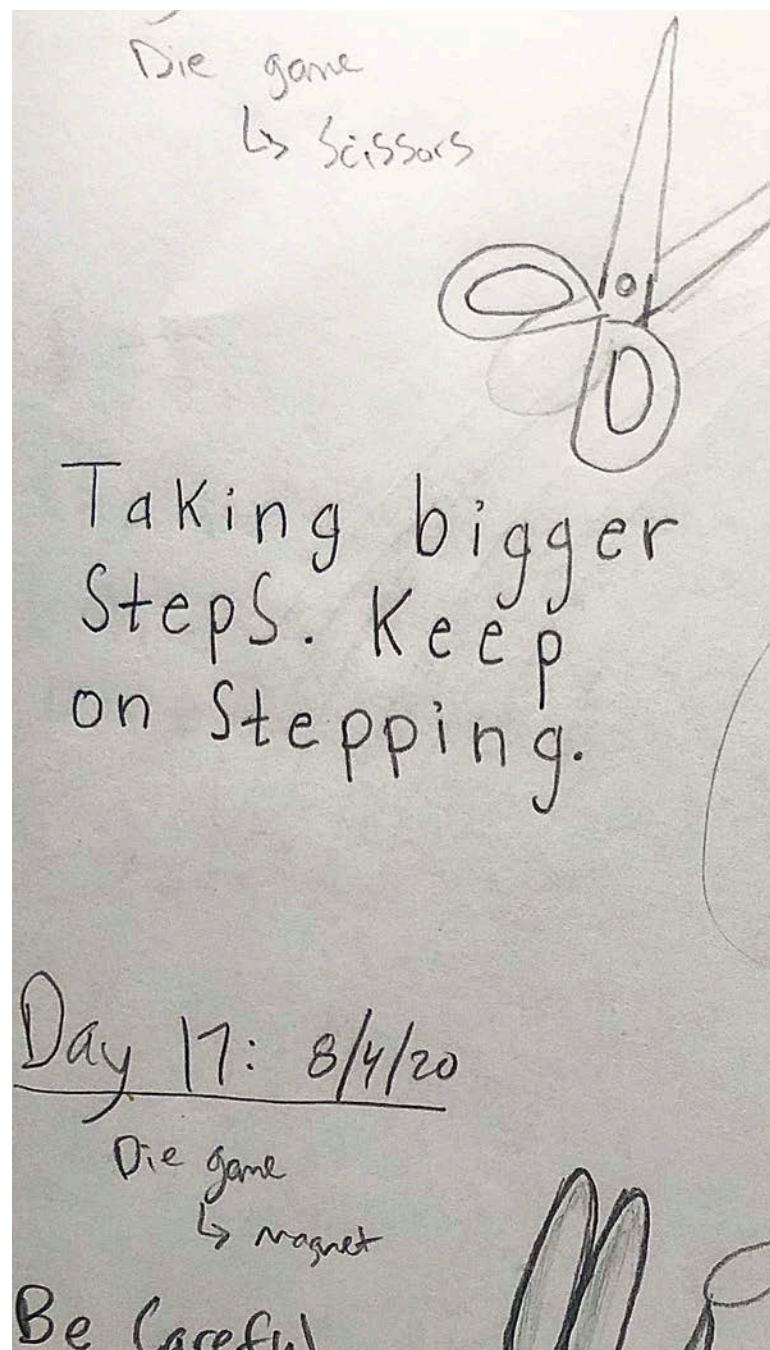 Die game
↳ Scissors
Taking bigger
Steps. Keep
on Stepping.
Day 17: 8/4/20
Die game
↳ magnet
Be Careful